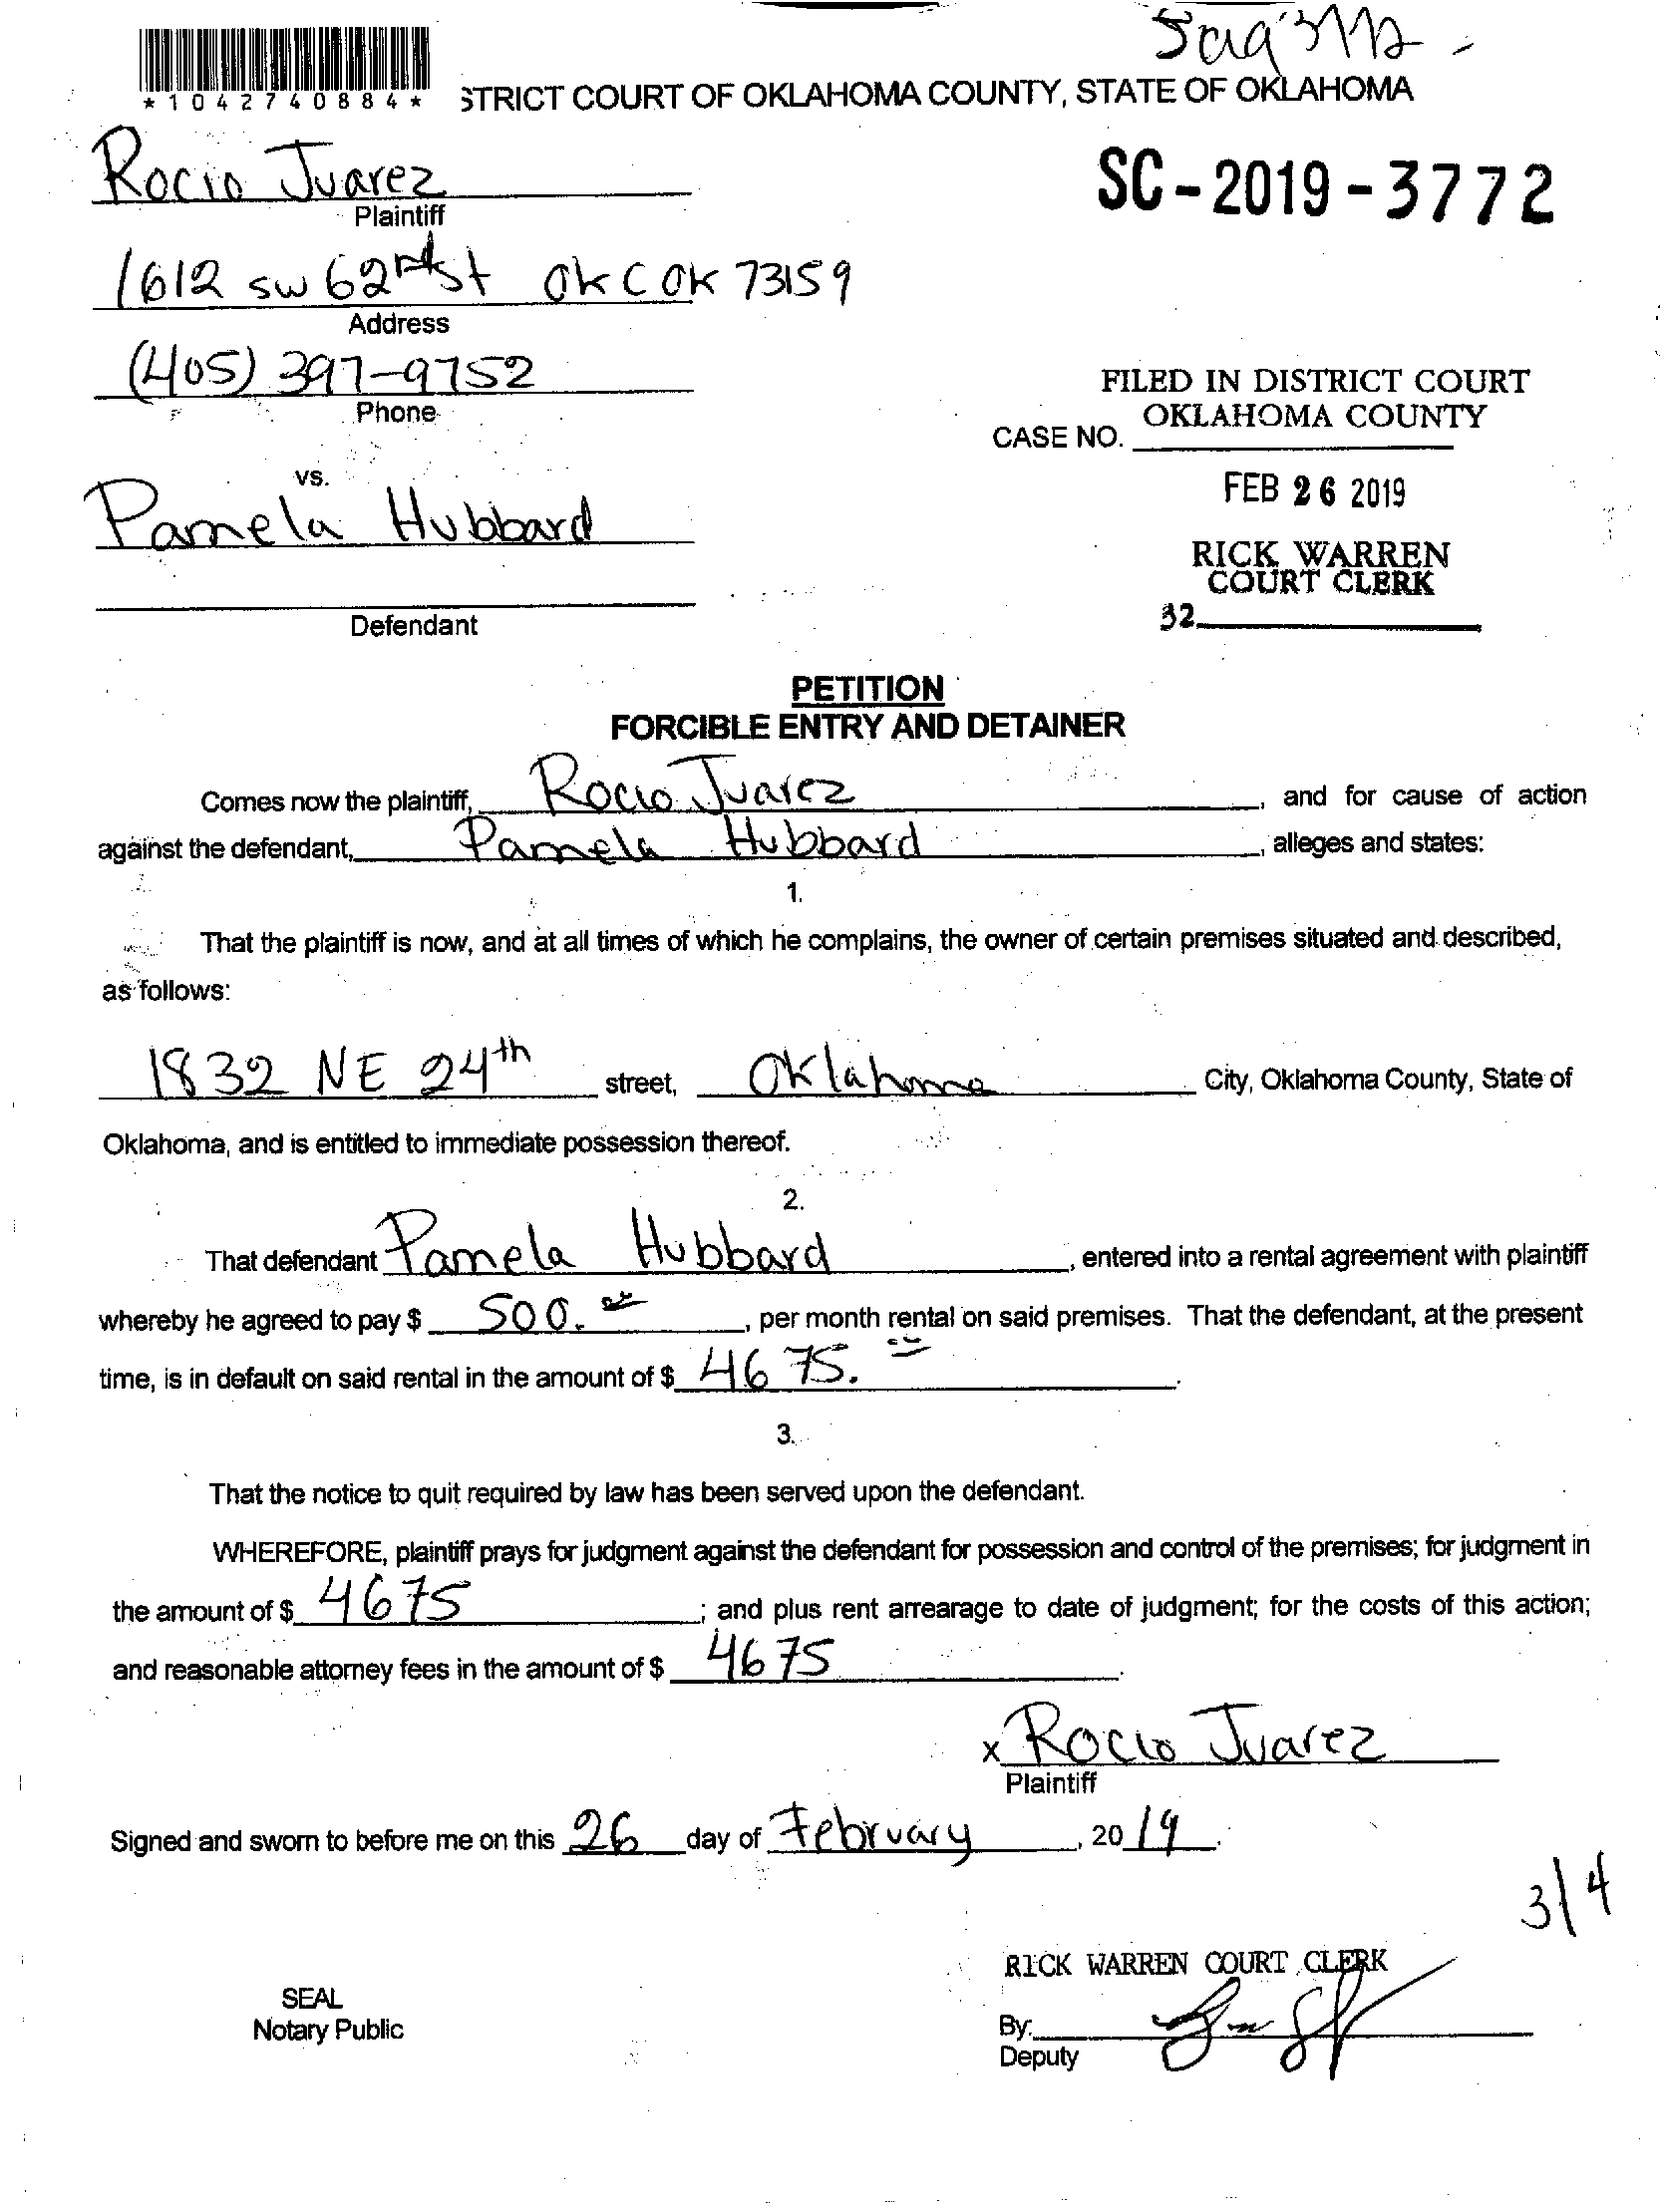 *1042740884*
STRICT COURT OF OKLAHOMA COUNTY, STATE OF OKLAHOMA
Rocio Juarez
Plaintiff
SC-2019-3772
1612 SW 62nd St OKC OK 73159
Address
(405) 397-9752
Phone
FILED IN DISTRICT COURT
OKLAHOMA COUNTY
CASE NO.
vs.
FEB 26 2019
Pamela Hubbard
RICK WARREN
COURT CLERK
32
Defendant
PETITION
FORCIBLE ENTRY AND DETAINER
Comes now the plaintiff, Rocio Juarez, and for cause of action
against the defendant, Pamela Hubbard, alleges and states:
1.
That the plaintiff is now, and at all times of which he complains, the owner of certain premises situated and described,
as follows:
1832 NE 24th street, Oklahoma City, Oklahoma County, State of
Oklahoma, and is entitled to immediate possession thereof.
2.
That defendant Pamela Hubbard, entered into a rental agreement with plaintiff
whereby he agreed to pay $ 500.00, per month rental on said premises. That the defendant, at the present
time, is in default on said rental in the amount of $ 4675.00.
3.
That the notice to quit required by law has been served upon the defendant.
WHEREFORE, plaintiff prays for judgment against the defendant for possession and control of the premises; for judgment in
the amount of $ 4675; and plus rent arrearage to date of judgment; for the costs of this action;
and reasonable attorney fees in the amount of $ 4675.
x Rocio Juarez
Plaintiff
Signed and sworn to before me on this 26 day of February, 2019.
3/4
RICK WARREN COURT CLERK
SEAL
Notary Public
By:
Deputy